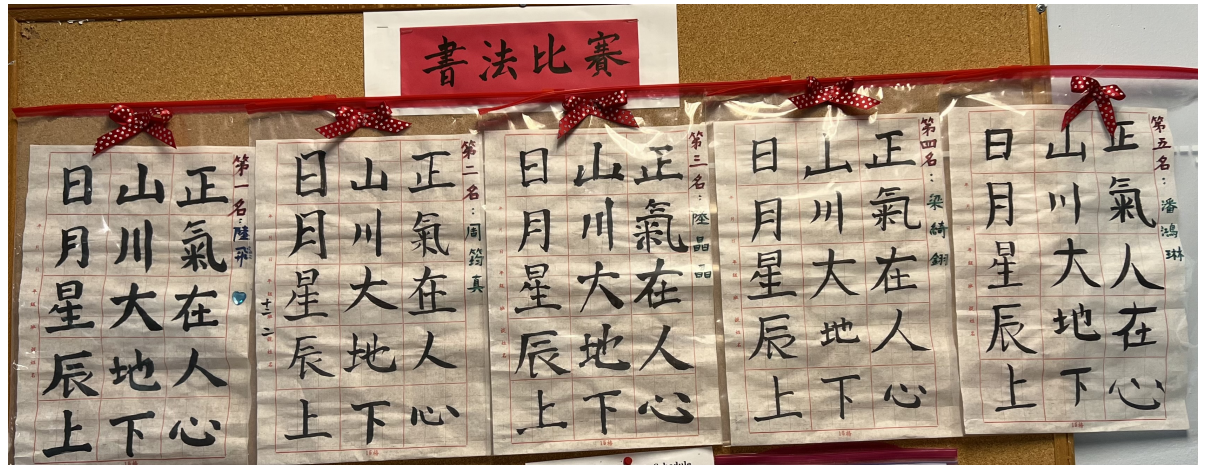 書法比賽
第一名：陸飛
正氣在人心
山川大地下
日月星辰上
第二名：周筠真
正氣在人心
山川大地下
日月星辰上
第三名：陸晶晶
正氣在人心
山川大地下
日月星辰上
第四名：梁綺翎
正氣在人心
山川大地下
日月星辰上
第五名：潘鴻琳
正氣人在心
山川大地下
日月星辰上
Schedule